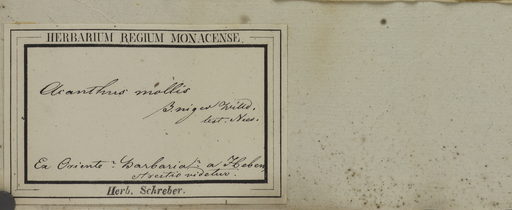 HERBARIUM REGIUM MONACENSE.
Acanthus mollis
β. niger Willd.
test. Nees.
Ex Oriente
a Heben
videtur.
Herb. Schreber.